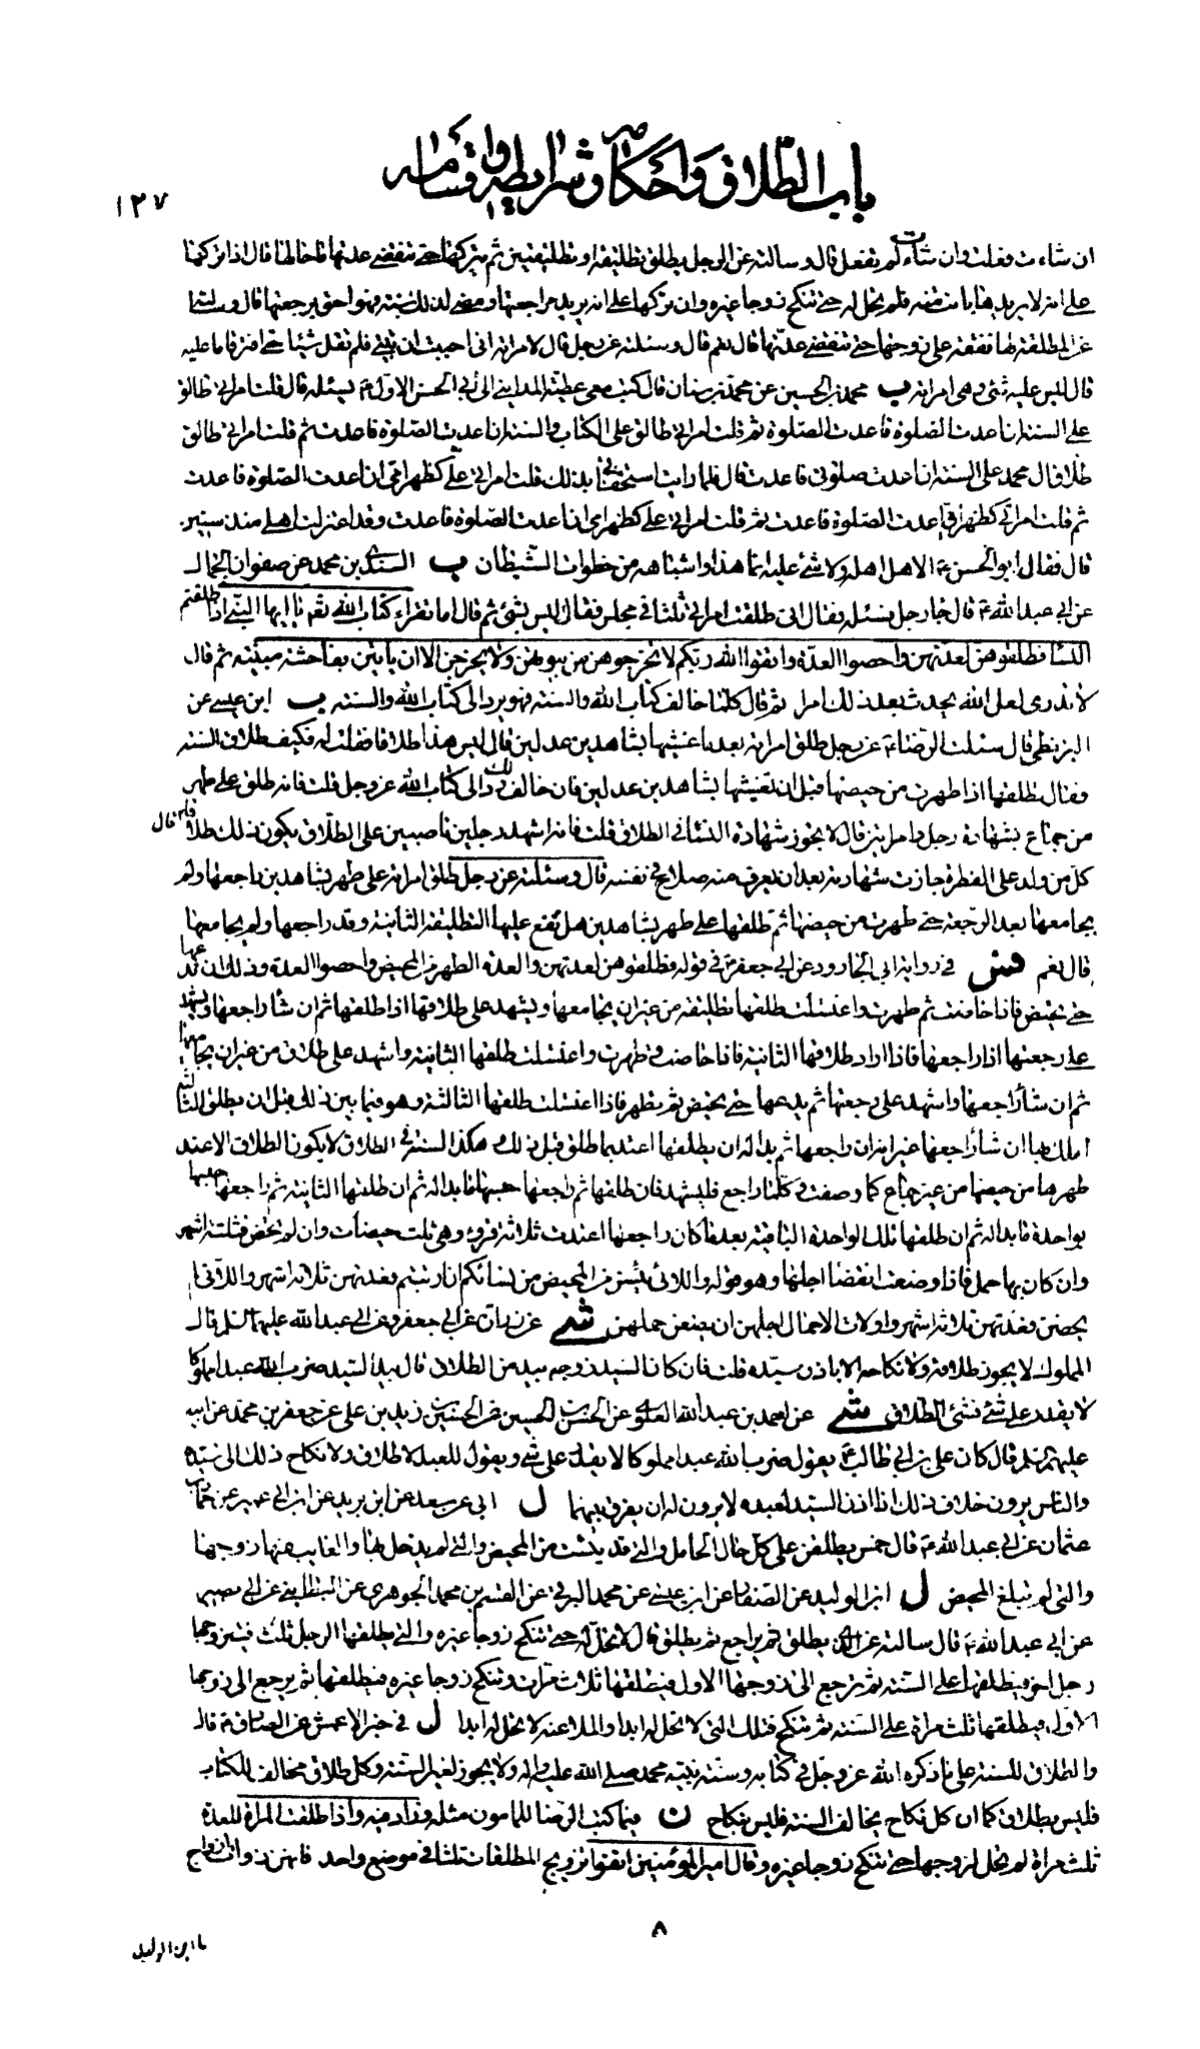 باب الطلاق واحكامه وشرايطه واقسامه
١٢٧
ان شاءت فعلت وان شاءت لم تفعل قال وسالته عن الرجل يطلق تطليقة او تطليقتين ثم يتركها حتى تنقضي عدتها ما حالها قال اذا تركها
على انه لا يريدها بانت منه فلم تحل له حتى تنكح زوجا غيره وان تركها على انه يريد مراجعتها ومضى لذلك سنة فهو احق برجعتها قال وسئلته
عن المطلقة لها نفقة على زوجها حتى تنقضي عدتها قال نعم قال وسئلته عن رجل قال لامراته اني احببت ان تبيني فلم تقل شيئا حتى افترقا ما عليه
قال ليس عليه شئ وهي امراته ب محمد بن الحسين عن محمد بن سنان قال كتب معي عطية المدايني الى ابي الحسن الاول ع يسئله قال قلت امراتي طالق
على السنة ان اعدت الصلوة فاعدت الصلوة ثم قلت امراتي طالق على الكتاب والسنة ان اعدت الصلوة فاعدت ثم قلت امراتي طالق
طلاق ال محمد على السنة ان اعدت صلوتي فاعدت قال فلما رايت استخفافي بذلك قلت امراتي علي كظهر امي ان اعدت الصلوة فاعدت
ثم قلت امراتي علي كظهر امي ان اعدت الصلوة فاعدت ثم قلت امراتي علي كظهر امي ان اعدت الصلوة فاعدت وقد اعتزلت اهلي منذ سنين
قال فقال ابو الحسن ع الاهل اهله ولا شئ عليه انما هذا واشباهه من خطوات الشيطان ب السندي بن محمد عن صفوان الجمال
عن ابي عبد الله ع قال جاء رجل فسئله فقال اني طلقت امراتي ثلثا في مجلس فقال ليس بشئ ثم قال اما تقراء كتاب الله تعم يا ايها النبي اذا طلقتم
النساء فطلقوهن لعدتهن واحصوا العدة واتقوا الله ربكم لا تخرجوهن من بيوتهن ولا يخرجن الا ان ياتين بفاحشة مبينة ثم قال
لا تدري لعل الله يحدث بعد ذلك امرا ثم قال كلما خالف كتاب الله والسنة فهو يرد الى كتاب الله والسنة ب ابن عيسى عن
البزنطي قال سئلت الرضا ع عن رجل طلق امراته بعد ما غشيها بشاهدين عدلين قال ليس هذا طلاقا فقلت له فكيف طلاق السنة
فقال يطلقها اذا طهرت من حيضها قبل ان يغشيها بشاهدين عدلين فان خالف ذلك رد الى كتاب الله عز وجل قلت فانه طلق على طهر
من جماع بشهادة رجل وامراتين قال لا يجوز شهادة النساء في الطلاق قلت فانه اشهد رجلين ناصبيين على الطلاق يكون ذلك طلاقا قال
كل من ولد على الفطرة جازت شهادته بعد ان يعرف منه صلاح في نفسه قال وسئلته عن رجل طلق امراته على طهر بشاهدين ثم راجعها ولم
يجامعها بعد الرجعة حتى طهرت من حيضها ثم طلقها على طهر بشاهدين هل تقع عليها التطليقة الثانية وقد راجعها ولم يجامعها
قال نعم فس في رواية ابي الجارود عن ابي جعفر ع في قوله فطلقوهن لعدتهن والعدة الطهر من المحيض واحصوا العدة وذلك ان تدعها
حتى تحيض فاذا حاضت ثم طهرت واغتسلت طلقها تطليقة من غير ان يجامعها ويشهد على طلاقها اذا طلقها ثم ان شاء راجعها ويشهد
على رجعتها اذا راجعها فاذا اراد طلاقها الثانية فاذا حاضت وطهرت واغتسلت طلقها الثانية واشهد على طلاق من غير ان يجامعها
ثم ان شاء راجعها واشهد على رجعتها ثم يدعها حتى تحيض ثم تطهر فاذا اغتسلت طلقها الثالثة وهو فيما بين ذلك قبل ان يطلق الثالثة
املك بها ان شاء راجعها غير انه ان راجعها ثم بدا له ان يطلقها اعتد بما طلق قبل ذلك وهكذا السنة في الطلاق لا يكون الطلاق الا عند
طهرها من حيضها من غير جماع كما وصفت وكلما راجع فليشهد فان طلقها ثم راجعها حبسها ما بدا له ثم ان طلقها الثانية ثم راجعها حبسها
بواحدة ما بدا له ثم ان طلقها تلك الواحدة الباقية بعد ما كان راجعها اعتدت ثلاثة قروء وهي ثلث حيضات وان لم تحض فثلثة اشهر
وان كان بها حمل فاذا وضعت انقضا اجلها وهو قوله واللائي يئسن من المحيض من نسائكم ان ارتبتم فعدتهن ثلاثة اشهر واللائي لم
يحضن فعدتهن ثلاثة اشهر واولات الاحمال اجلهن ان يضعن حملهن شي عن زرارة عن ابي جعفر وعن ابي عبد الله عليهما السلم قال
المملوك لا يجوز طلاقه ولا نكاحه الا باذن سيده قلت فان كان السيد زوجه بيد من الطلاق قال بيد السيد ضرب الله عبدا مملوكا
لا يقدر على شئ فشئ الطلاق شي عن احمد بن عبد الله العلوي عن الحسن بن الحسين عن الحسين بن زيد بن علي عن جعفر بن محمد عن ابيه
عليهم السلم قال كان علي بن ابي طالب ع يقول ضرب الله عبدا مملوكا لا يقدر على شئ ويقول للعبد لا طلاق ولا نكاح ذلك الى سيده
والناس يرون خلاف ذلك اذا اذن السيد لعبده لا يرون له ان يفرق بينهما ل ابي عن سعد عن ابن يزيد عن ابن ابي عمير عن حماد بن
عثمان عن ابي عبد الله ع قال خمس يطلقن على كل حال الحامل والتي قد يئست من المحيض والتي لم يدخل بها والغايب عنها زوجها
والتي لم تبلغ المحيض ل ابن الوليد عن الصفار عن ابن عيسى عن محمد البرقي عن القسم بن محمد الجوهري عن البطائني عن ابي بصير
عن ابي عبد الله ع قال سالته عن الذي يطلق ثم يراجع ثم يطلق قال لا تحل له حتى تنكح زوجا غيره والتي يطلقها الرجل ثلث فيتزوجها
رجل اخر فيطلقها على السنة ثم ترجع الى زوجها الاول فيطلقها ثلاث مرات وتنكح زوجا غيره فيطلقها ثم يرجع الى زوجها
الاول فيطلقها ثلث مرات على السنة ثم تنكح فتلك التي لا تحل له ابدا والملاعنة لا تحل له ابدا ل في خبر الاعمش عن الصادق ع قال
والطلاق للسنة على ما ذكره الله عز وجل في كتابه وسنة نبيه محمد صلى الله عليه واله ولا يجوز لغير السنة وكل طلاق مخالف للكتاب
فليس بطلاق كما ان كل نكاح يخالف السنة فليس بنكاح ن فيما كتب الرضا للمامون مثله وزاد فيه واذا طلقت المراة للعدة
ثلث مراة لم تحل لزوجها حتى تنكح زوجا غيره وقال امير المؤمنين اتقوا تزويج المطلقات ثلثا في موضع واحد فانهن ذوات ازواج
٨
ما ابن الوليد